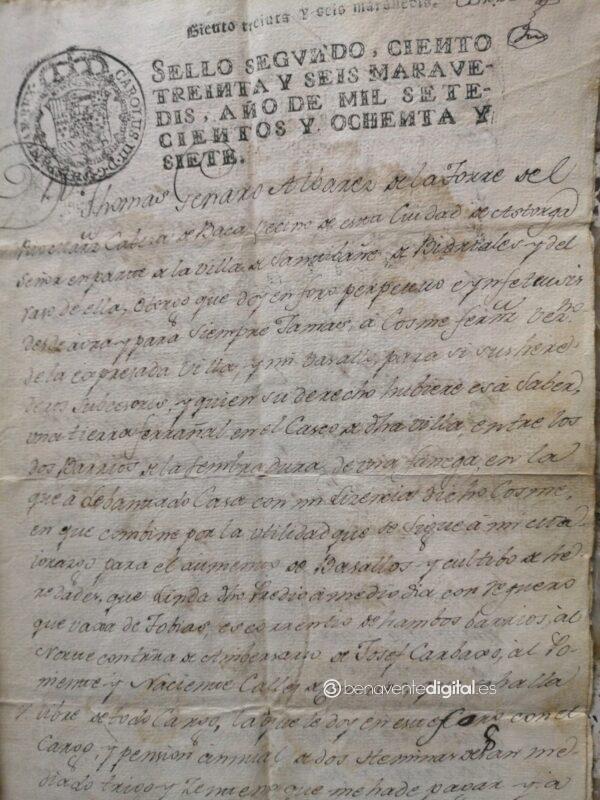 Ciento treinta y seis maravedis.
SELLO SEGVNDO, CIENTO
TREINTA Y SEIS MARAVE-
DIS, AÑO DE MIL SETE-
CIENTOS Y OCHENTA Y
SIETE.
CAROLUS III D. G.
Thomas Genaro Albarez de la Torre del
Cabeza de Baca Vecino de esta Ciudad de Astorga
Señor en parte de la Villa de de Bidriales y del
de ella, que doy en foro perpetuo e
desde aora y para Siempre Jamas, à Cosme fernz Vezno
de la expresada Villa, y mi Basallo, para si sus here
deros subcesores, y quien su derecho hubiere es à Saber,
una tierra ferrañal en el Casco de dha villa, entre los
dos Barrios de la sembradura de una fanega, en la
que à lebantado Casa con mi lizencia dicho Cosme,
en que combine por la utilidad que se sigue à mi
para el aumento de Basallos y cultibo de he
redades, que linda dho Predio à medio dia con reguero
que vaxa de Tobias, es corriente de hambos barrios, al
Norte con tierra de Anibersario de Josef Carbajo, al Po
niente y Naciente Calles
y libre de todo Cargo, la que le doy en este foro con el
Cargo, y pension annual de dos Heminas de Pan me
diado trigo y Zenteno que me hade pagar y à
benaventedigital.es